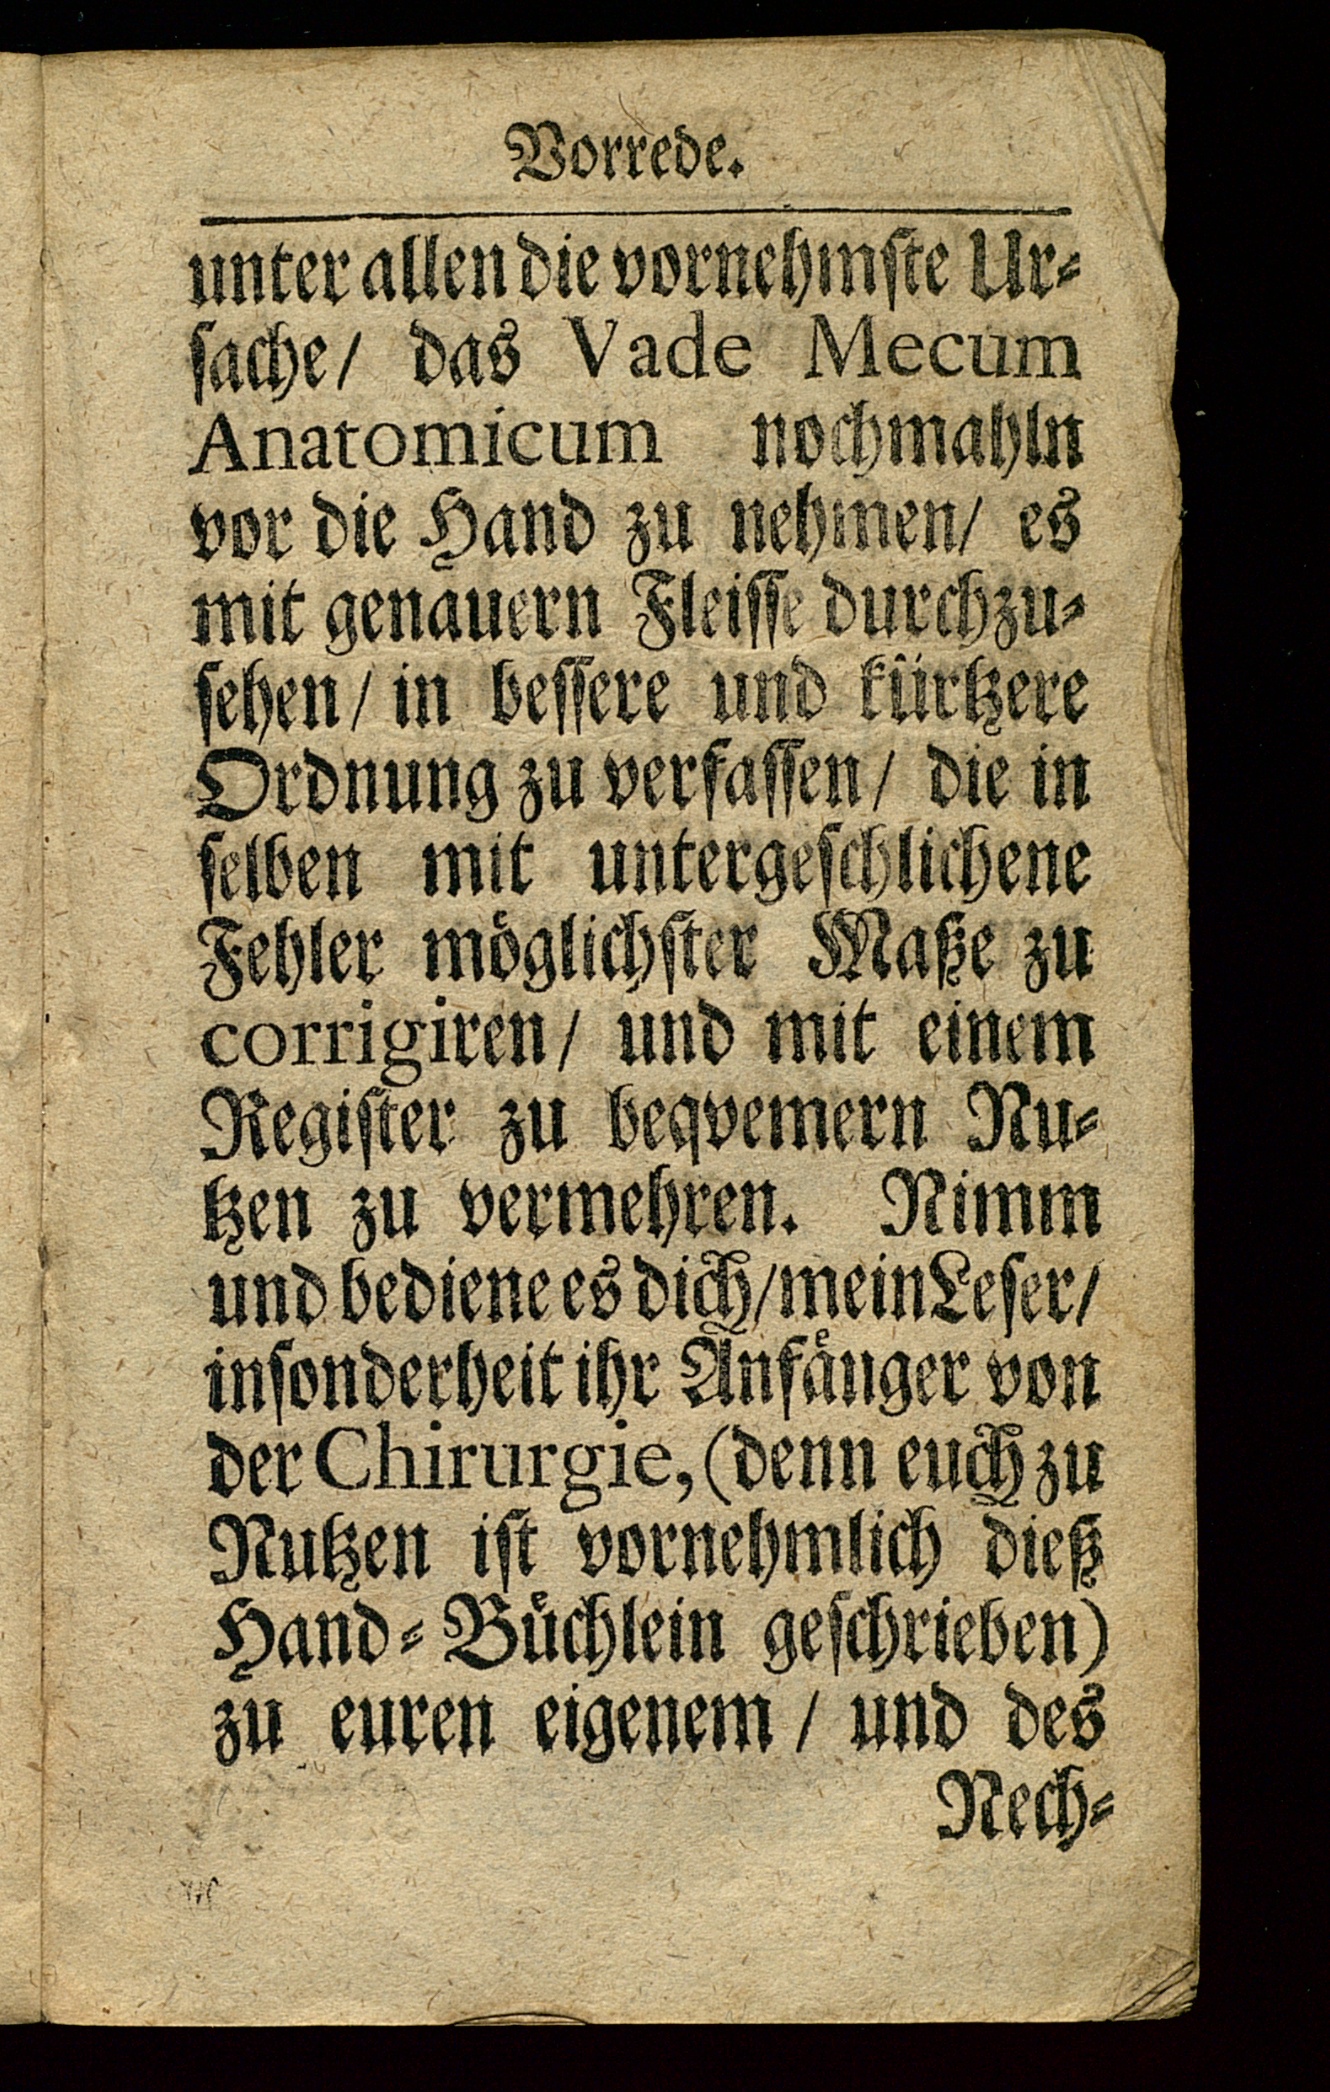 Vorrede.
unter allen die vornehmste Ur-
sache/ das Vade Mecum
Anatomicum nochmahln
vor die Hand zu nehmen/ es
mit genauern Fleisse durchzu-
sehen/ in bessere und kürtzere
Ordnung zu verfassen/ die in
selben mit untergeschlichene
Fehler möglichster Maße zu
corrigiren/ und mit einem
Register zu beqvemern Nu-
tzen zu vermehren. Nimm
und bediene es dich/ mein Leser/
insonderheit ihr Anfänger von
der Chirurgie, (denn euch zu
Nutzen ist vornehmlich dieß
Hand-Büchlein geschrieben)
zu euren eigenem/ und des
Nech-